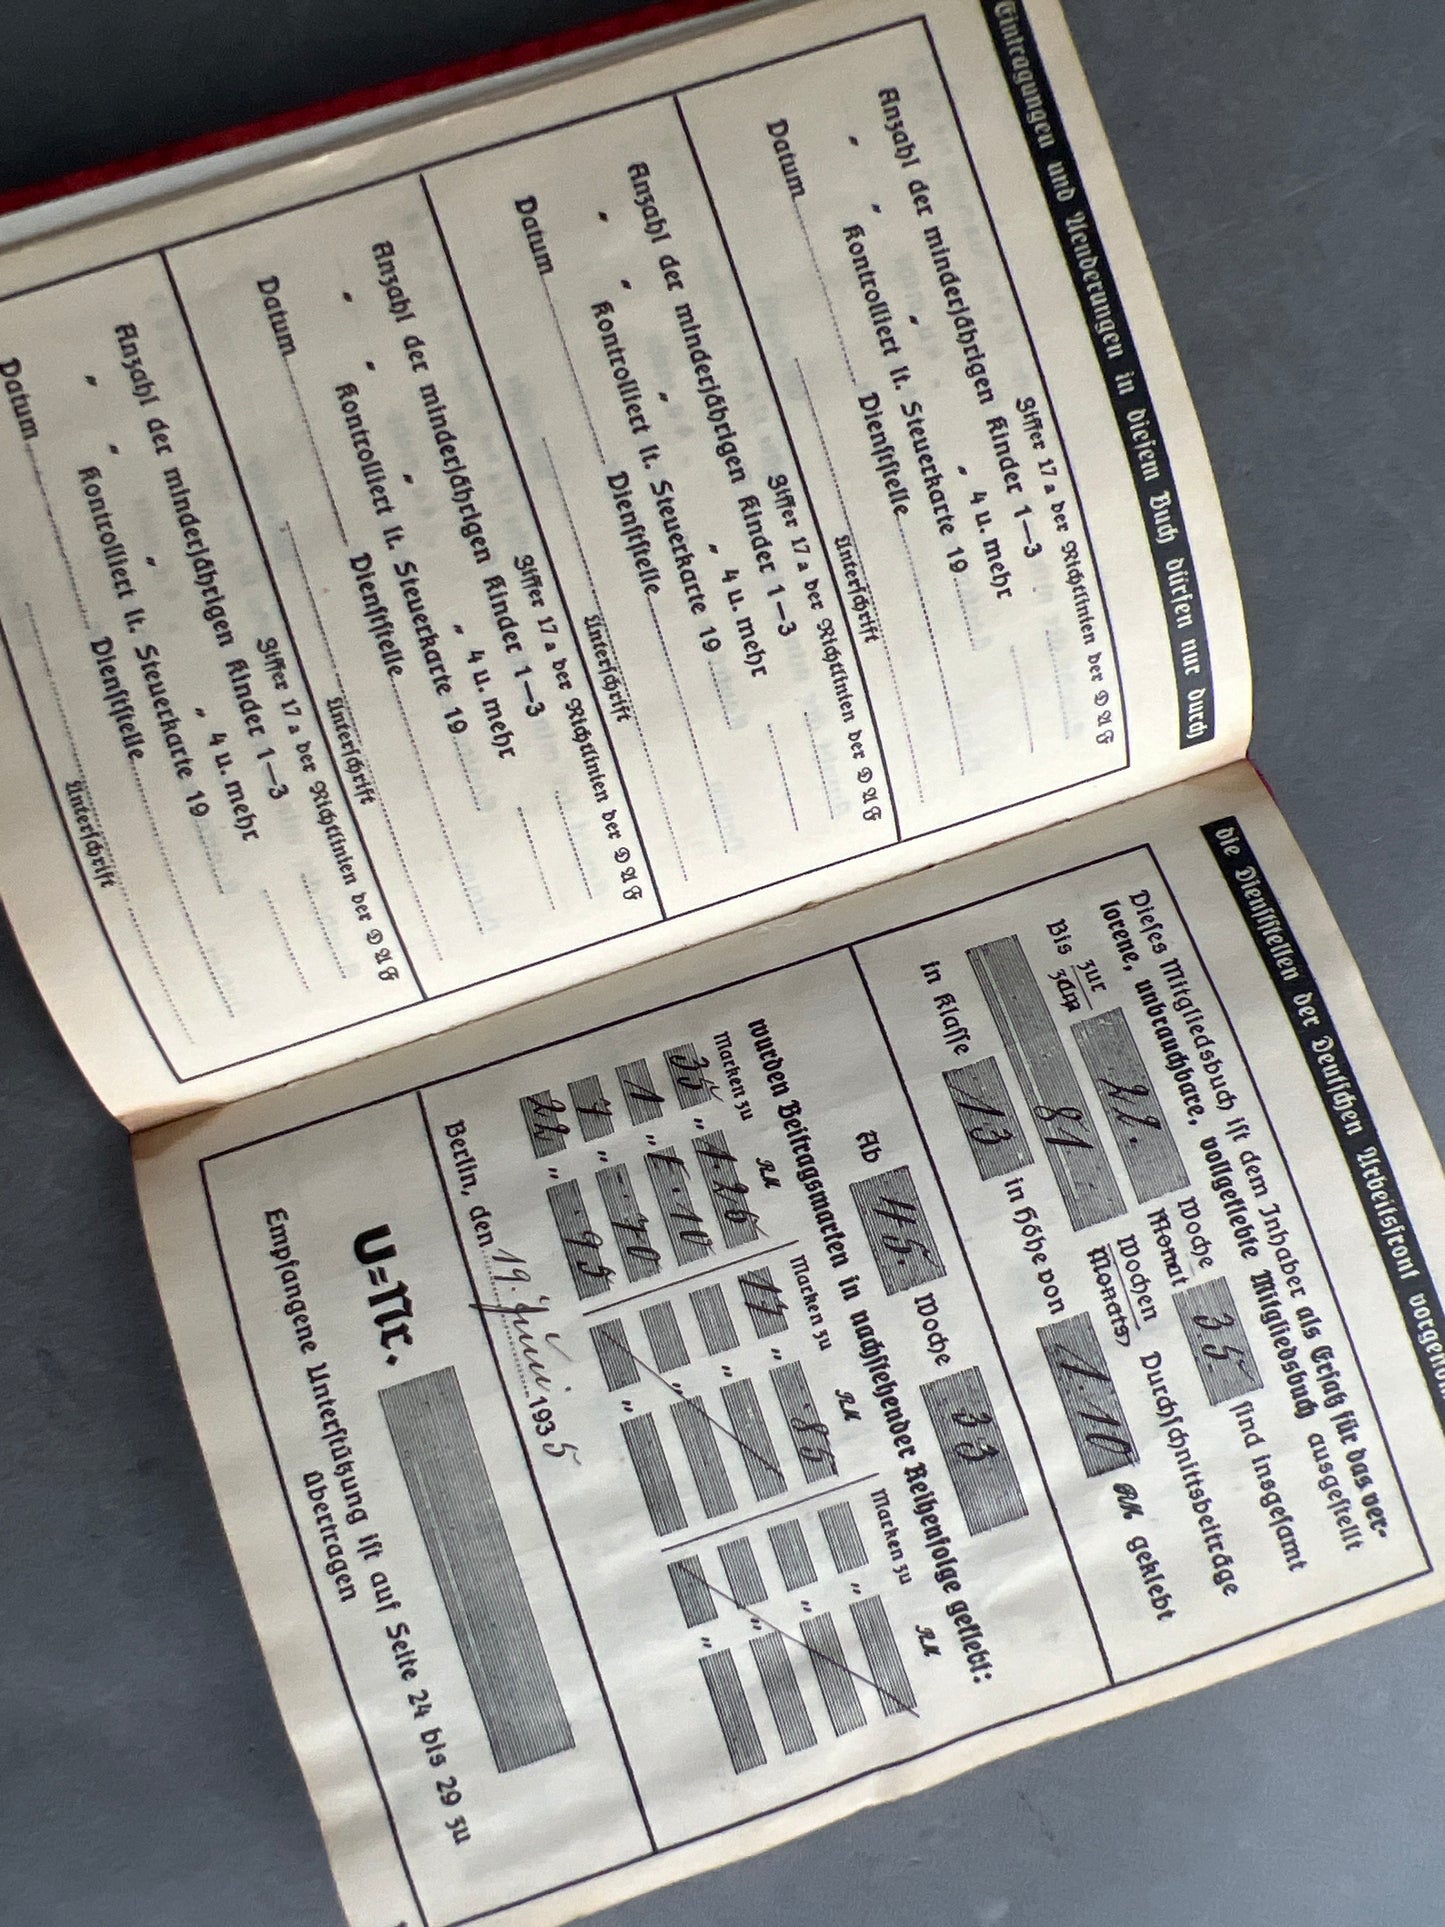 Eintragungen und Aenderungen in diesem Buch dürfen nur durch
Ziffer 17 a der Richtlinien der DAF
Anzahl der minderjährigen Kinder 1—3
" " " " 4 u. mehr
Kontrolliert lt. Steuerkarte 19
Datum Dienststelle
Unterschrift
Ziffer 17 a der Richtlinien der DAF
Anzahl der minderjährigen Kinder 1—3
" " " " 4 u. mehr
Kontrolliert lt. Steuerkarte 19
Datum Dienststelle
Unterschrift
Ziffer 17 a der Richtlinien der DAF
Anzahl der minderjährigen Kinder 1—3
" " " " 4 u. mehr
Kontrolliert lt. Steuerkarte 19
Datum Dienststelle
Unterschrift
Ziffer 17 a der Richtlinien der DAF
Anzahl der minderjährigen Kinder 1—3
" " " " 4 u. mehr
Kontrolliert lt. Steuerkarte 19
Datum Dienststelle
Unterschrift
die Dienststellen der Deutschen Arbeitsfront
Dieses Mitgliedsbuch ist dem Inhaber als Ersatz für das ver-
lorene, unbrauchbare, vollgeklebte Mitgliedsbuch ausgestellt
Bis zur zum Woche Monat 35 sind insgesamt
81 Wochen Monats Durchschnittsbeiträge
in Klasse 13 in Höhe von 1.10 RM geklebt
Ab 45. Woche 33
wurden Beitragsmarken in nachstehender Reihenfolge geklebt:
Marken zu RM Marken zu RM Marken zu RM
35 " 1.25 17 " .85 "
1 " 1.10 " "
7 " .70 " "
22 " .95 " "
Berlin, den 19. Juni 1935
U=Nr.
Empfangene Unterstützung ist auf Seite 24 bis 29 zu
übertragen